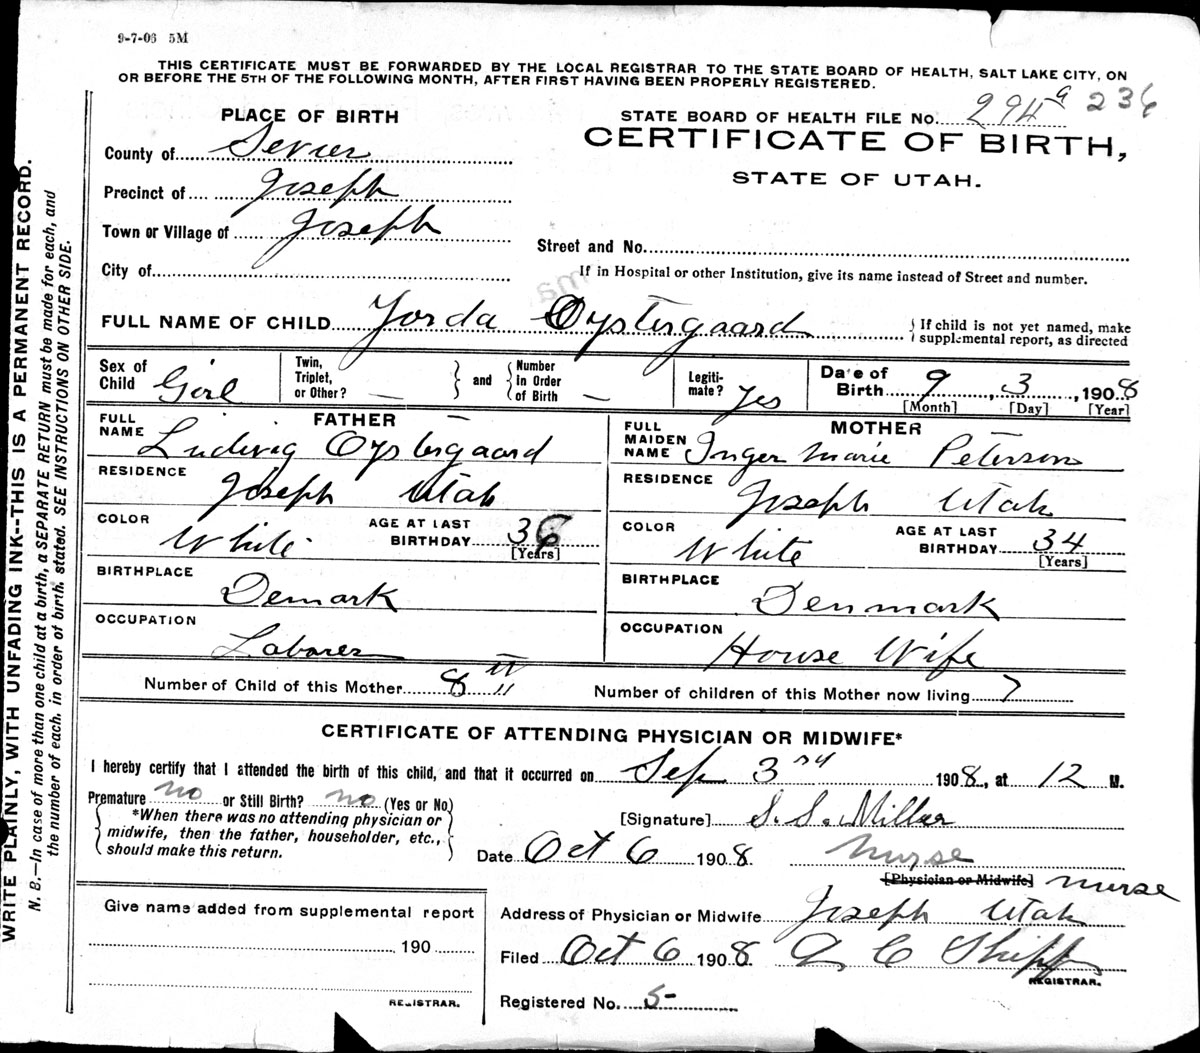 9-7-06 5M
THIS CERTIFICATE MUST BE FORWARDED BY THE LOCAL REGISTRAR TO THE STATE BOARD OF HEALTH, SALT LAKE CITY, ON
OR BEFORE THE 5TH OF THE FOLLOWING MONTH, AFTER FIRST HAVING BEEN PROPERLY REGISTERED.
WRITE PLAINLY, WITH UNFADING INK--THIS IS A PERMANENT RECORD.
N. B.—In case of more than one child at a birth, a SEPARATE RETURN must be made for each, and
the number of each, in order of birth, stated. SEE INSTRUCTIONS ON OTHER SIDE.
PLACE OF BIRTH
County of Sevier
Precinct of Joseph
Town or Village of Joseph
City of
STATE BOARD OF HEALTH FILE No. 294 a 236
CERTIFICATE OF BIRTH,
STATE OF UTAH.
Street and No.
If in Hospital or other Institution, give its name instead of Street and number.
FULL NAME OF CHILD Yorda Oystergaard
{If child is not yet named, make
supplemental report, as directed
Sex of Child Girl
Twin, Triplet, or Other? — and Number in Order of Birth —
Legiti-mate? Yes
Date of Birth 9, 3, 1908
[Month] [Day] [Year]
FATHER
FULL NAME Ludivig Oystergaard
RESIDENCE Joseph Utah
COLOR White AGE AT LAST BIRTHDAY 36 [Years]
BIRTHPLACE Demark
OCCUPATION Laborer
MOTHER
FULL MAIDEN NAME Inger Marie Peterson
RESIDENCE Joseph Utah
COLOR White AGE AT LAST BIRTHDAY 34 [Years]
BIRTHPLACE Denmark
OCCUPATION House Wife
Number of Child of this Mother 8th Number of children of this Mother now living 7
CERTIFICATE OF ATTENDING PHYSICIAN OR MIDWIFE*
I hereby certify that I attended the birth of this child, and that it occurred on Sep 3rd 1908, at 12 M.
Premature no or Still Birth? no (Yes or No)
{*When there was no attending physician or
midwife, then the father, householder, etc.,
should make this return.}
[Signature] S. S. Miller
Date Oct 6 1908. nurse
[Physician or Midwife] nurse
Give name added from supplemental report
190
REGISTRAR.
Address of Physician or Midwife Joseph Utah
Filed Oct 6 1908
REGISTRAR.
Registered No. 5-